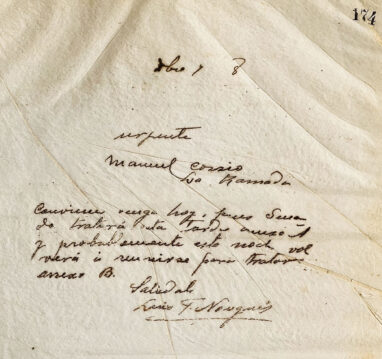 174
8bre 7 8
urgente
Manuel Cossio
La Ramada
Conviene venga hoy, pues Sena
do tratará esta tarde anexo A
y probablemente esta noche vol
verá á reunirse para tratar
anexo B.
Salúdale
Luis F. Nougués